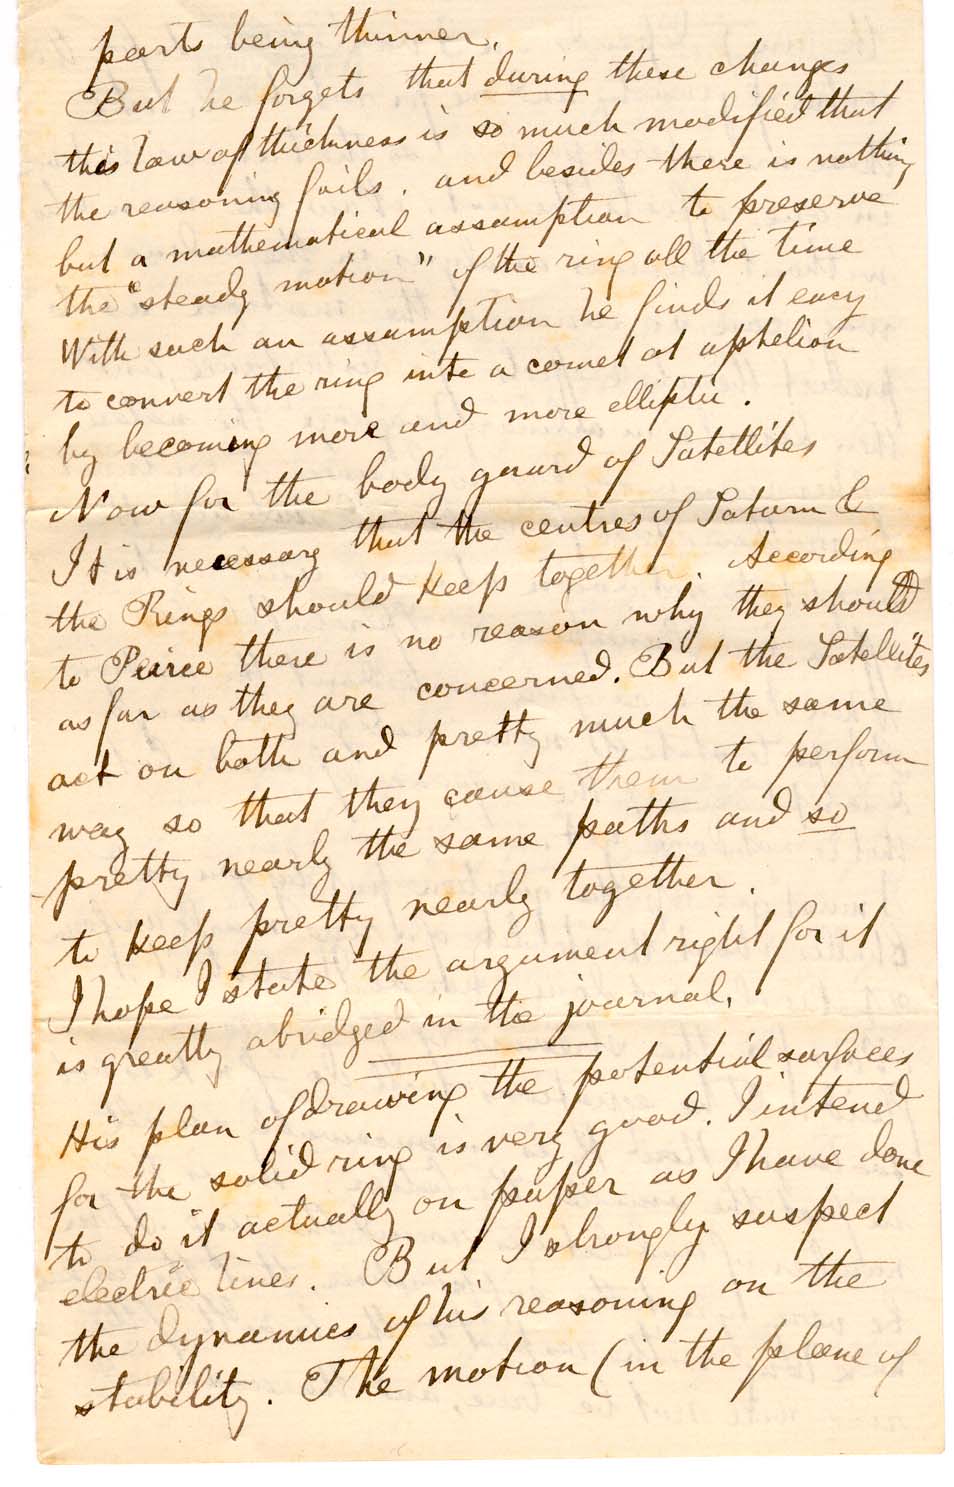 parts being thinner.
But he forgets that during these changes
this law of thickness is so much modified that
the reasoning fails. and besides there is nothing
but a mathematical assumption to preserve
the "steady motion" of the ring all the time
With such an assumption he finds it easy
to convert the ring into a comet at aphelion
by becoming more and more elliptic.
Now for the body guard of Satellites
It is necessary that the centres of Saturn &
the Rings should keep together. According
to Peirce there is no reason why they should
as far as they are concerned. But the Satellites
act on both and pretty much the same
way so that they cause them to perform
pretty nearly the same paths and so
to keep pretty nearly together.
I hope I state the argument right for it
is greatly abridged in the journal.
His plan of drawing the potential surfaces
for the solid ring is very good. I intend
to do it actually on paper as I have done
electric lines. But I strongly suspect
the dynamics of his reasoning on the
stability. The motion (in the plane of